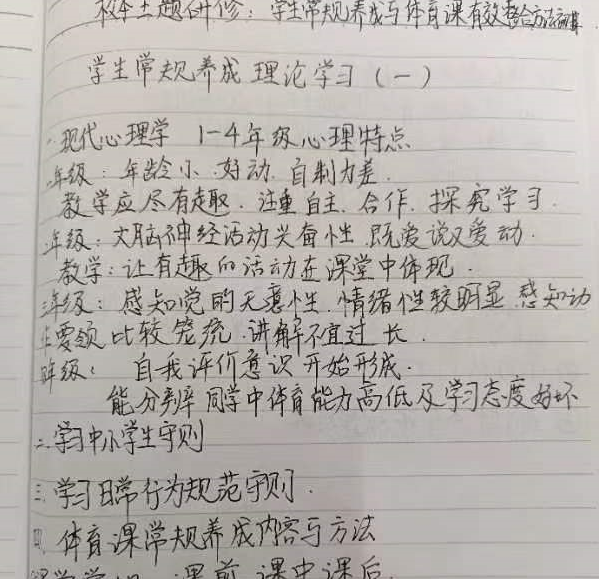 校本主题研修：学生常规养成与体育课有效整合方法
学生常规养成 理论学习（一）
一、现代心理学 1-4年级心理特点
年级：年龄小.好动.自制力差.
教学应尽有趣.注重自主.合作.探究学习.
年级：大脑神经活动兴奋性.既爱说又爱动.
教学：让有趣的活动在课堂中体现.
年级：感知觉的无意性.情绪性较明显 感知动
作要领比较笼统.讲解不宜过长.
年级：自我评价意识开始形成.
能分辨率同学中体育能力高低及学习态度好坏
二.学习中小学生守则
三.学习日常行为规范守则.
四.体育课常规养成内容与方法
课前 课中 课后.